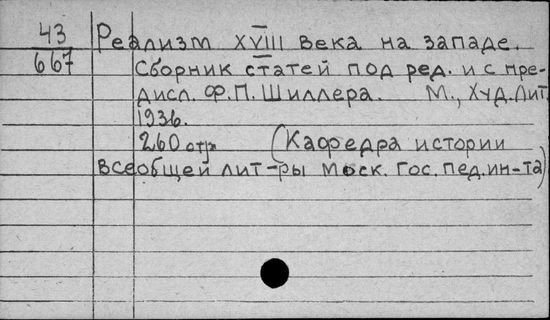 43 Реализм XVIII века на западе.
667 Сборник статей под ред. и с пре-
дисл. Ф.П. Шиллера. М., Худ. Лит.
1936.
260 стр. (Кафедра истории
всеобщей лит-ры Моск. Гос. пед. ин-та)